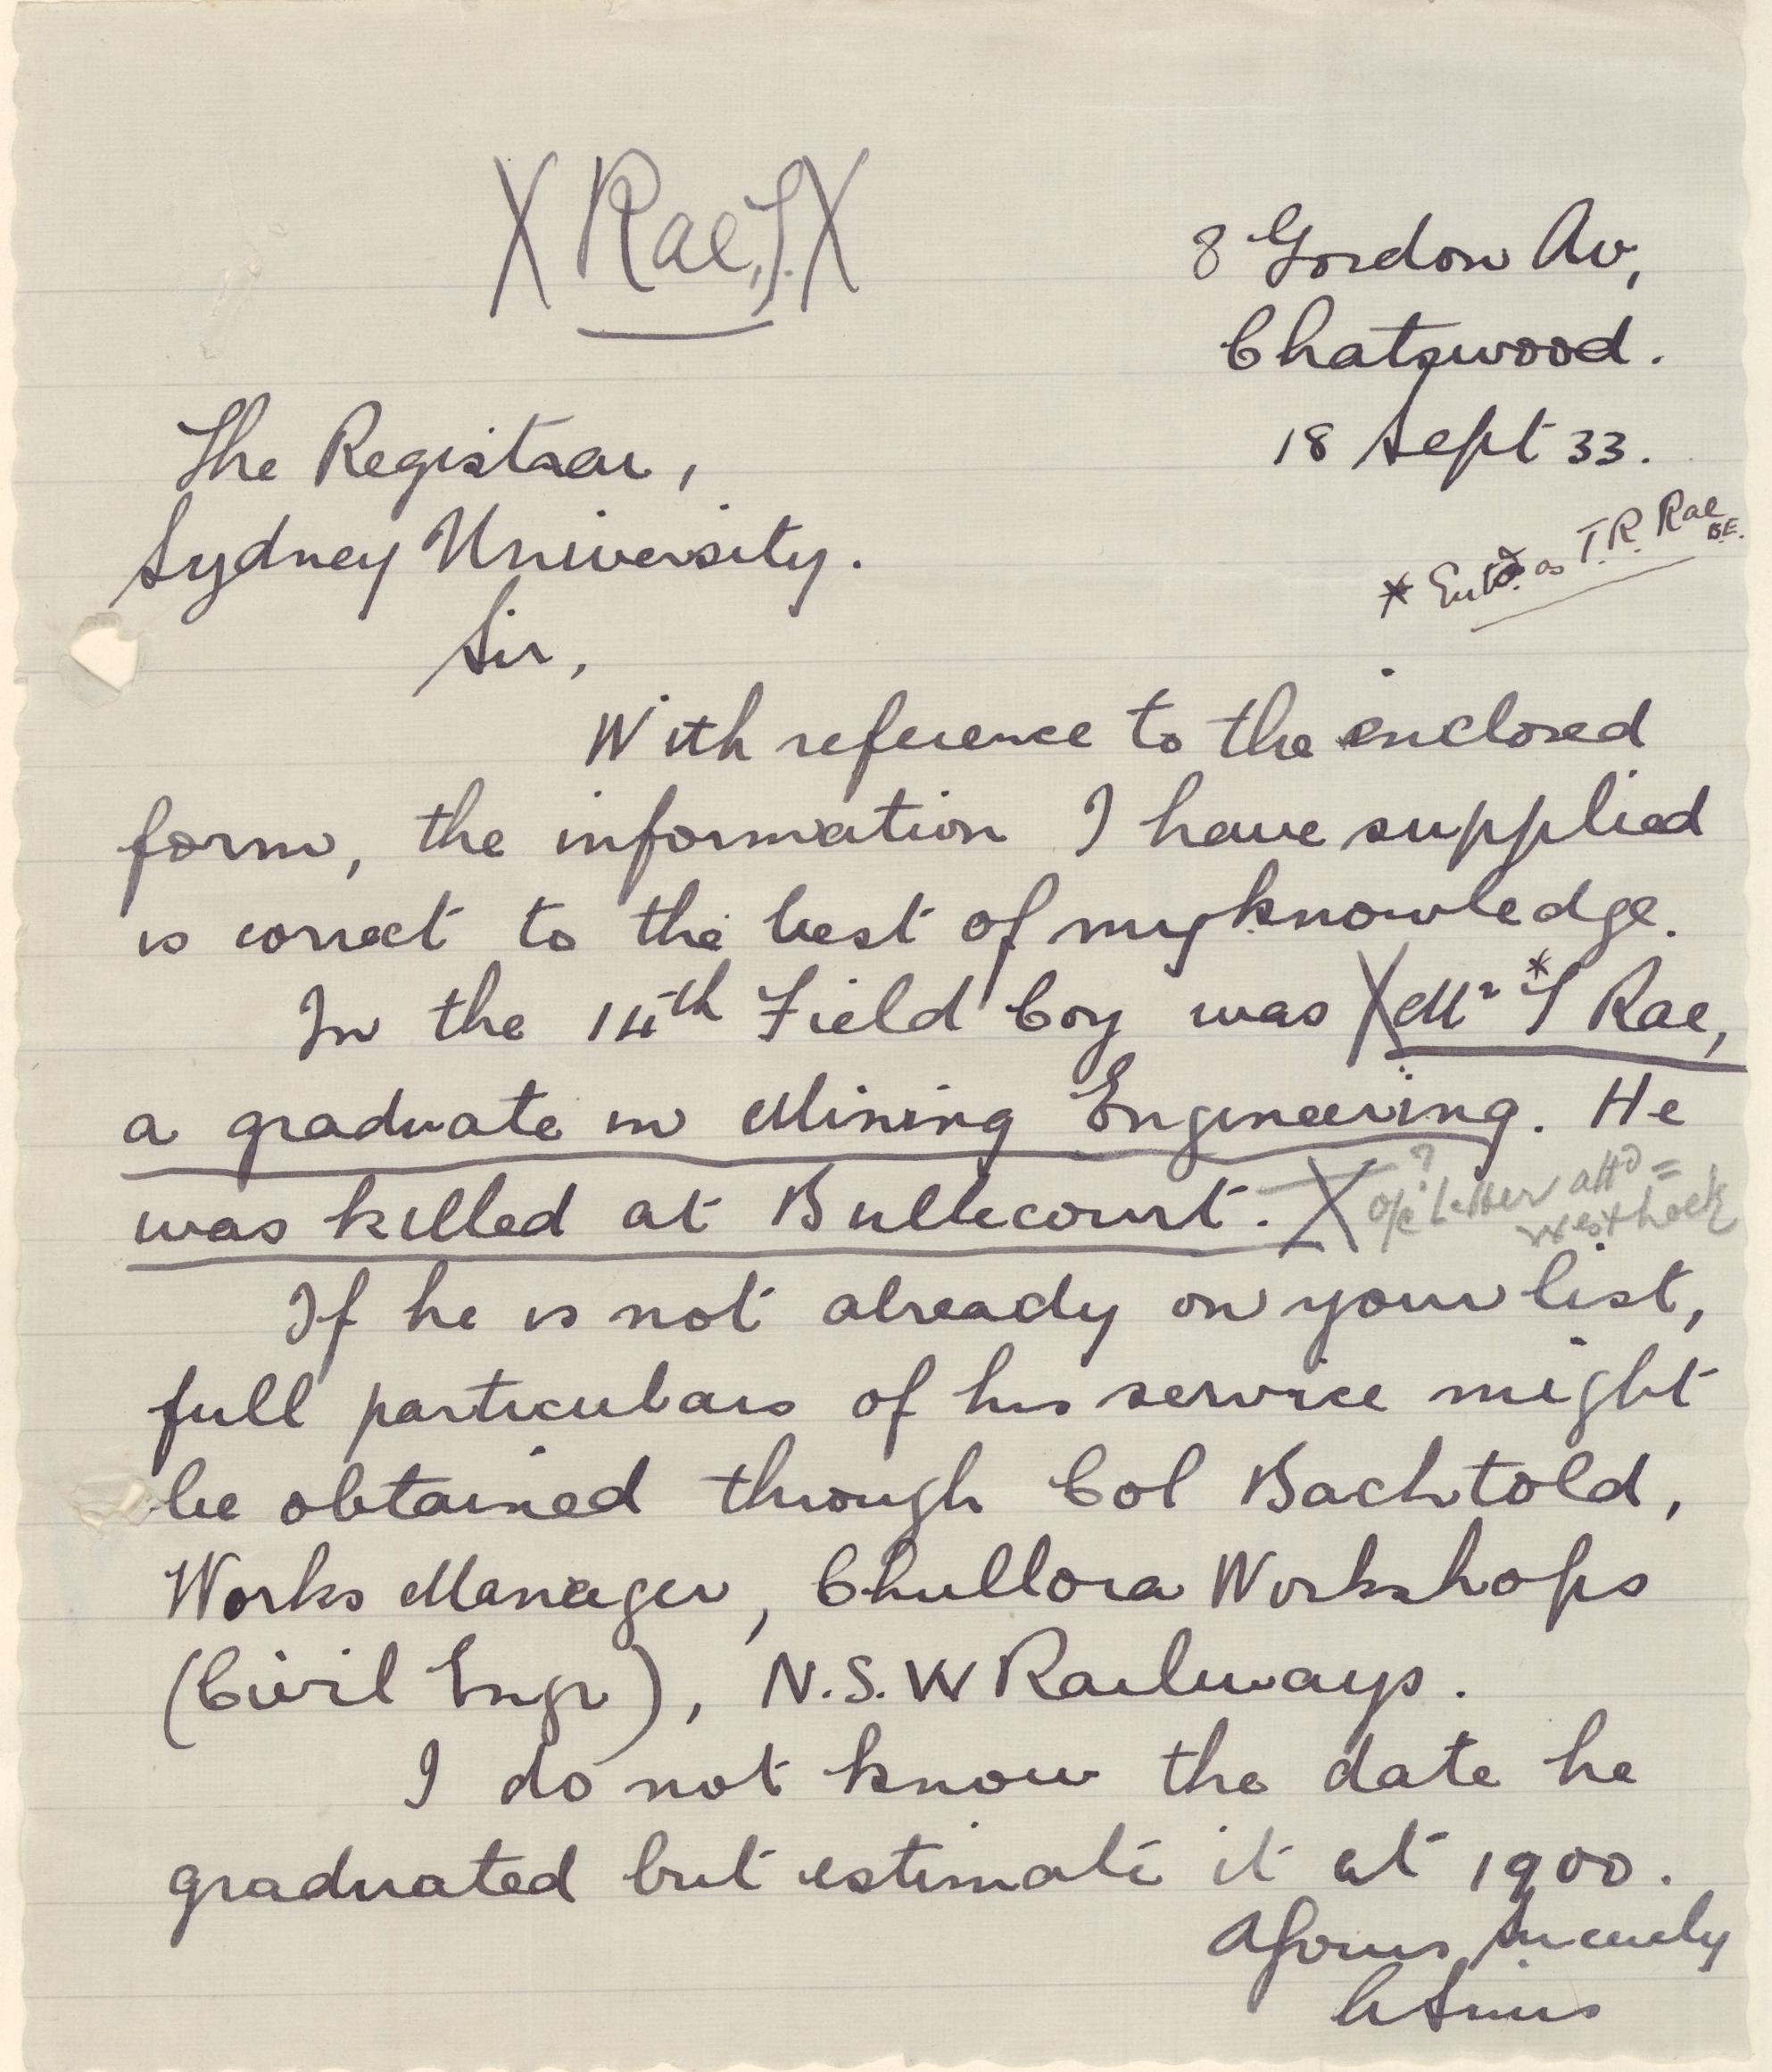 X Rae, J. X
8 Gordon Av,
Chatswood.
18 Sept 33.
The Registrar,
Sydney University.
* Entd. as T.R. Rae
B.E.
Sir,
With reference to the enclosed
form, the information I have supplied
is correct to the best of my knowledge.
In the 14th Field Coy was X Mr * J Rae,
a graduate in Mining Engineering. He
was killed at Bullecourt. X ? letter attd =
Westhoek
If he is not already on your list,
full particulars of his service might
be obtained through Col Bachtold,
Works Manager, Chullora Workshops
(Civil Engr), N.S.W Railways.
I do not know the date he
graduated but estimate it at 1900.
Yours Sincerely